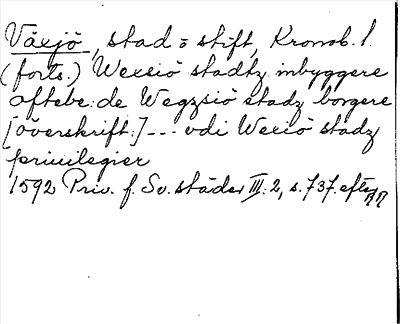 Växjö, stad o stift, Kronob. l.
(forts.) Wexsiö stadtz inbyggere
oftebe: de Wegzsiö stadz borgere
[överskrift:] --- vdi Wexiö stadz
priuilegier
1592 Priv. f. Sv. städer III: 2, s. 737. efter